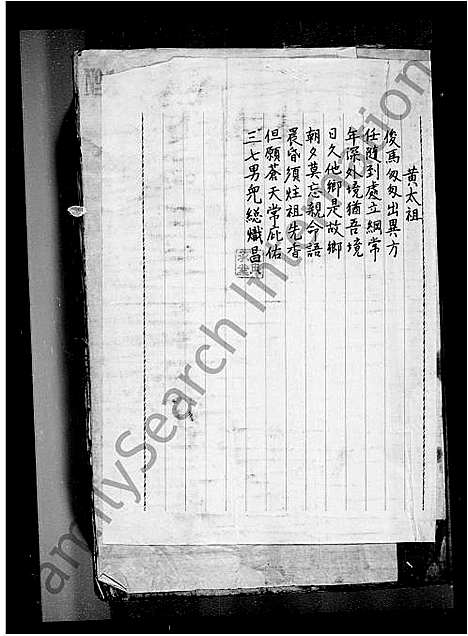 黄太祖
俊馬匆匆出異方
任隨到處立綱常
年深外境猶吾境
日久他鄉是故鄉
朝夕莫忘親命語
晨昏須炷祖先香
但願蒼天常庇佑
三七男兒總熾昌
No
amilySearch International